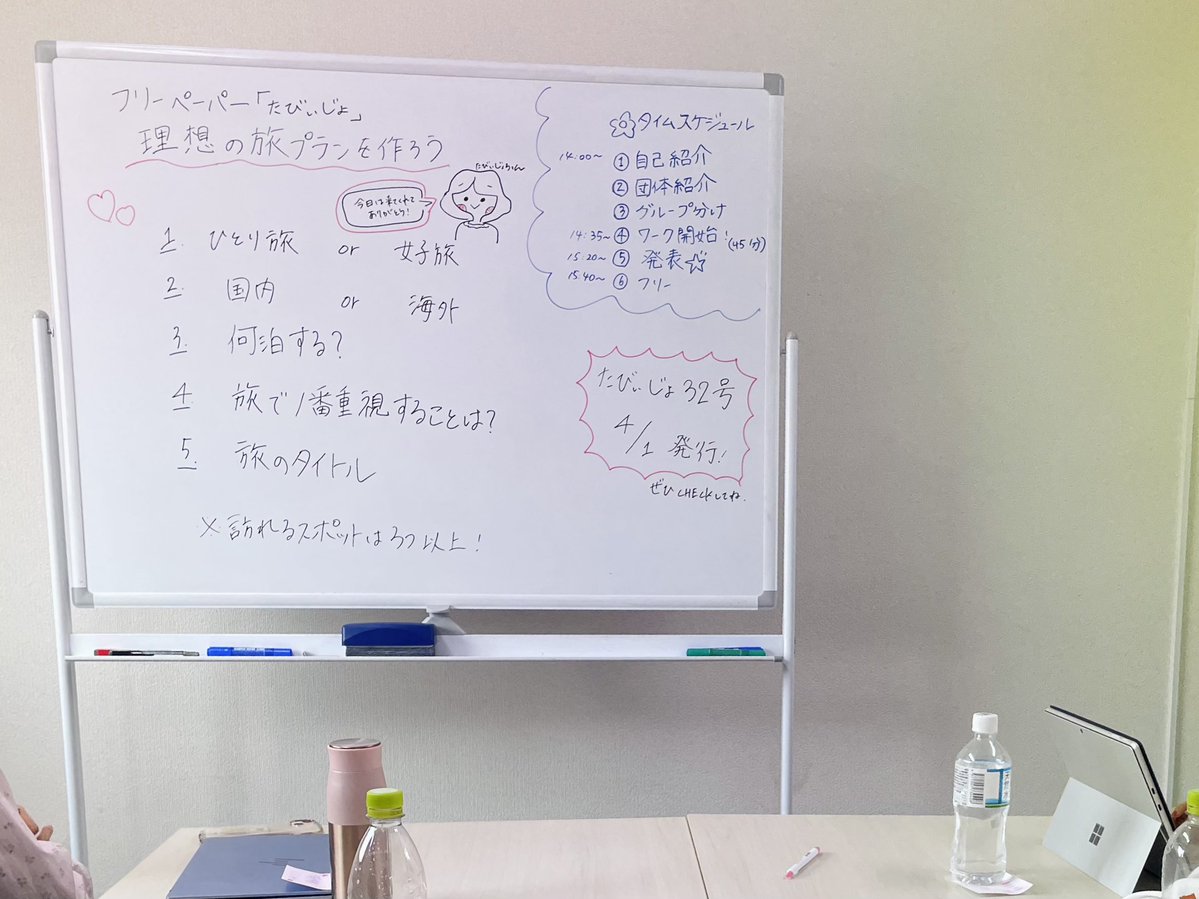 フリーペーパー「たびぃじょ」
理想の旅プランを作ろう
たびぃじょちゃん
今日は来てくれて
ありがとう!
1. ひとり旅 or 女子旅
2. 国内 or 海外
3. 何泊する?
4. 旅で1番重視することは?
5. 旅のタイトル
※訪れるスポットは3つ以上!
タイムスケジュール
14:00〜 ①自己紹介
②団体紹介
③グループ分け
14:35〜 ④ワーク開始!(45分)
15:20〜 ⑤発表☆
15:40〜 ⑥フリー
たびぃじょ32号
4/1 発行!
ぜひCHECKしてね.